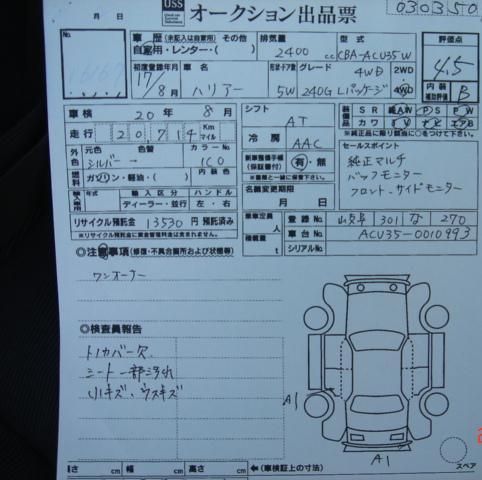 月 日
USS オークション出品票
030350
No.
車歴 (未記入は自家用) その他
自家用・レンター・( )
排気量
2400 cc
型式
CBA-ACU35W
評価点
4.5
初度登録年月
17/8月
車名
ハリアー
形状・ドア数
5W
グレード
240G Lパッケージ
4WD
2WD・4WD
内装補助評価
B
車検 20年 8月
シフト
AT
装備品
S R A W P S P W
カワ T V エアB
※純正品に限り該当に○をつけて下さい。
走行 20714 Km マイル
冷房
AAC
セールスポイント
純正マルチ
バックモニター
フロント、サイドモニター
外色 元色 色替
シルバー →
カラーNo.
1C0
燃料 ガソリン・軽油・( )
内装色
新車整備手帳(保証書付)
有・無
※書類と一緒に保管して下さい。
輸入車用 年式 輸入区分 ハンドル
ディーラー・並行 左・右
名義変更期限
月 日
リサイクル預託金 13530 円 預託済み
※リサイクル預託金に資金管理料金は含まれません。
車歴定人員 人
積載量 t
登録No. 301 な 270
車台No. ACU35-0010993
シリアルNo.
◎注意事項(修復・不具合箇所および状態等)
ワンオーナー
◎検査員報告
トノカバー欠
シート一部汚れ
小キズ、ウスキズ
A1
A1
スペア
長さ cm 幅 cm 高さ cm ←(車検証上の寸法)